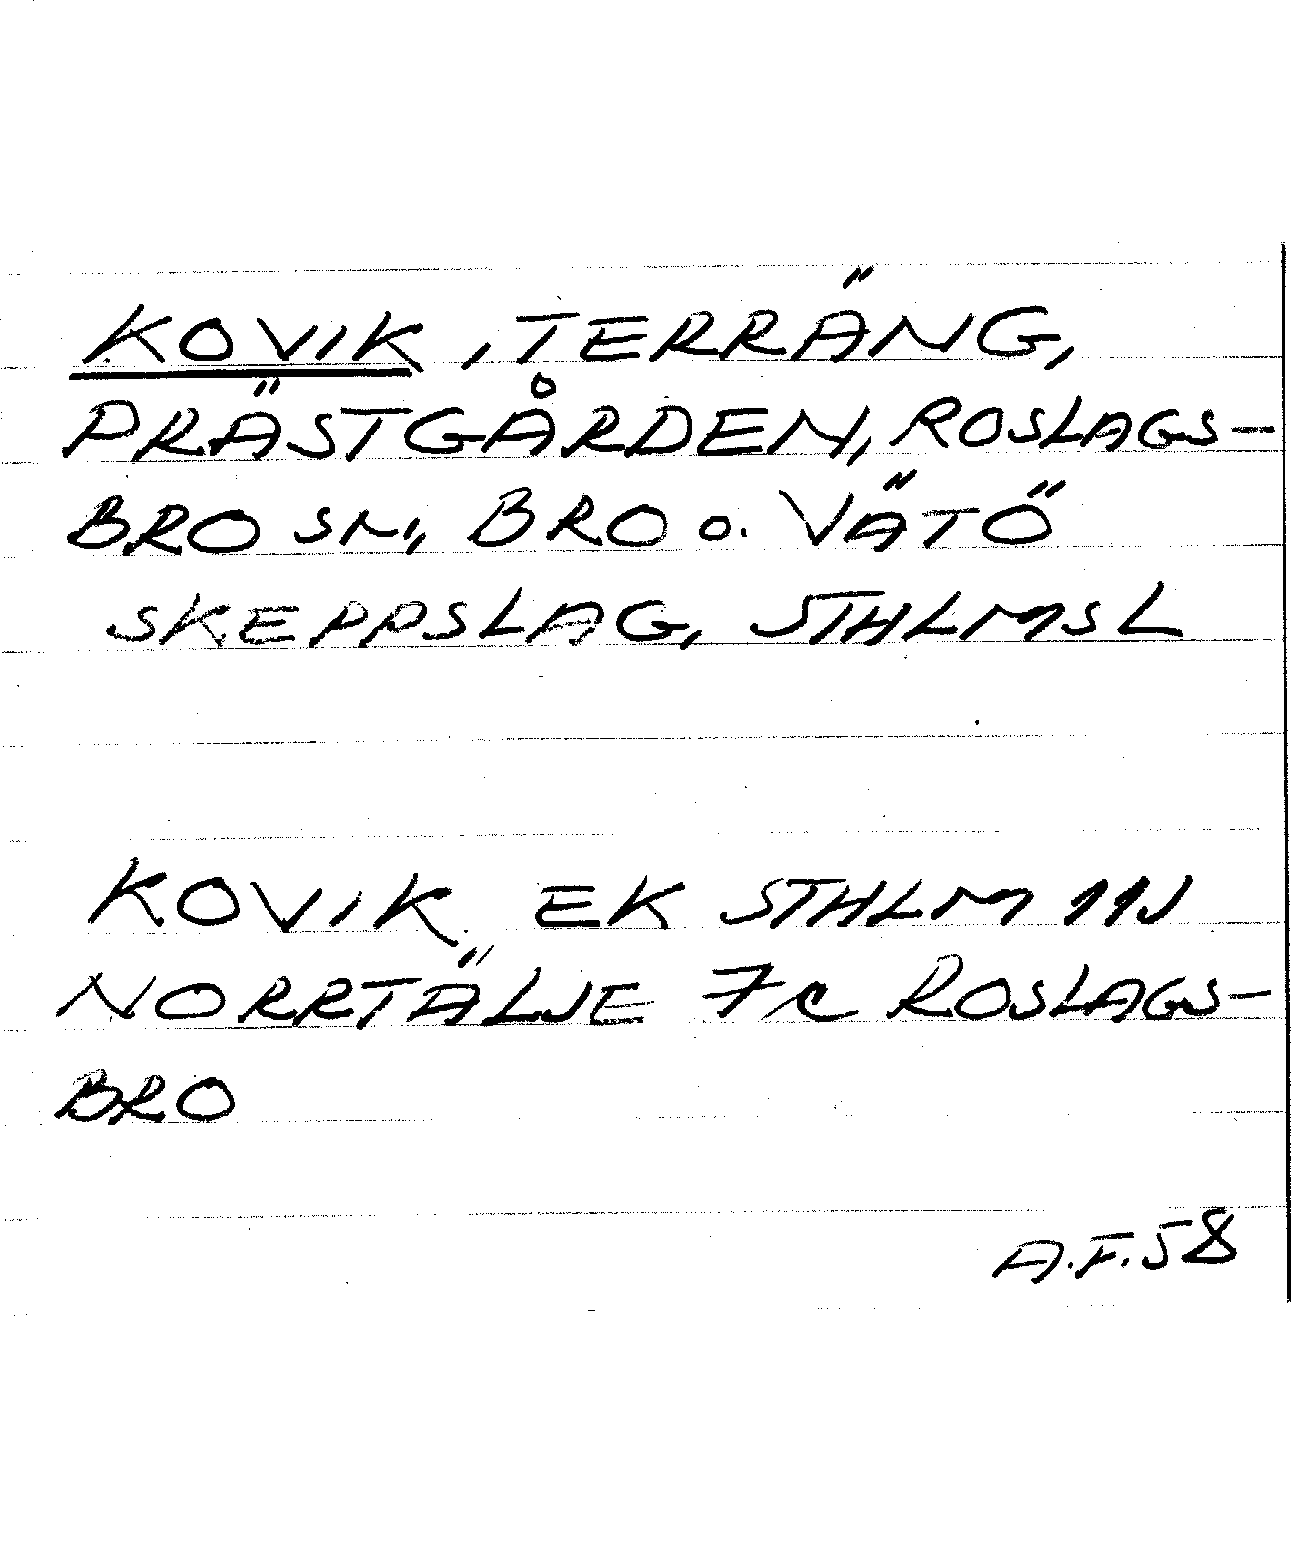 KOVIK, TERRÄNG,
PRÄSTGÅRDEN, ROSLAGS-
BRO SN, BRO o. VÄTÖ
SKEPPSLAG, STHLMSL
KOVIK, EK STHLM 11J
NORRTÄLJE 7c ROSLAGS-
BRO
A.F.58